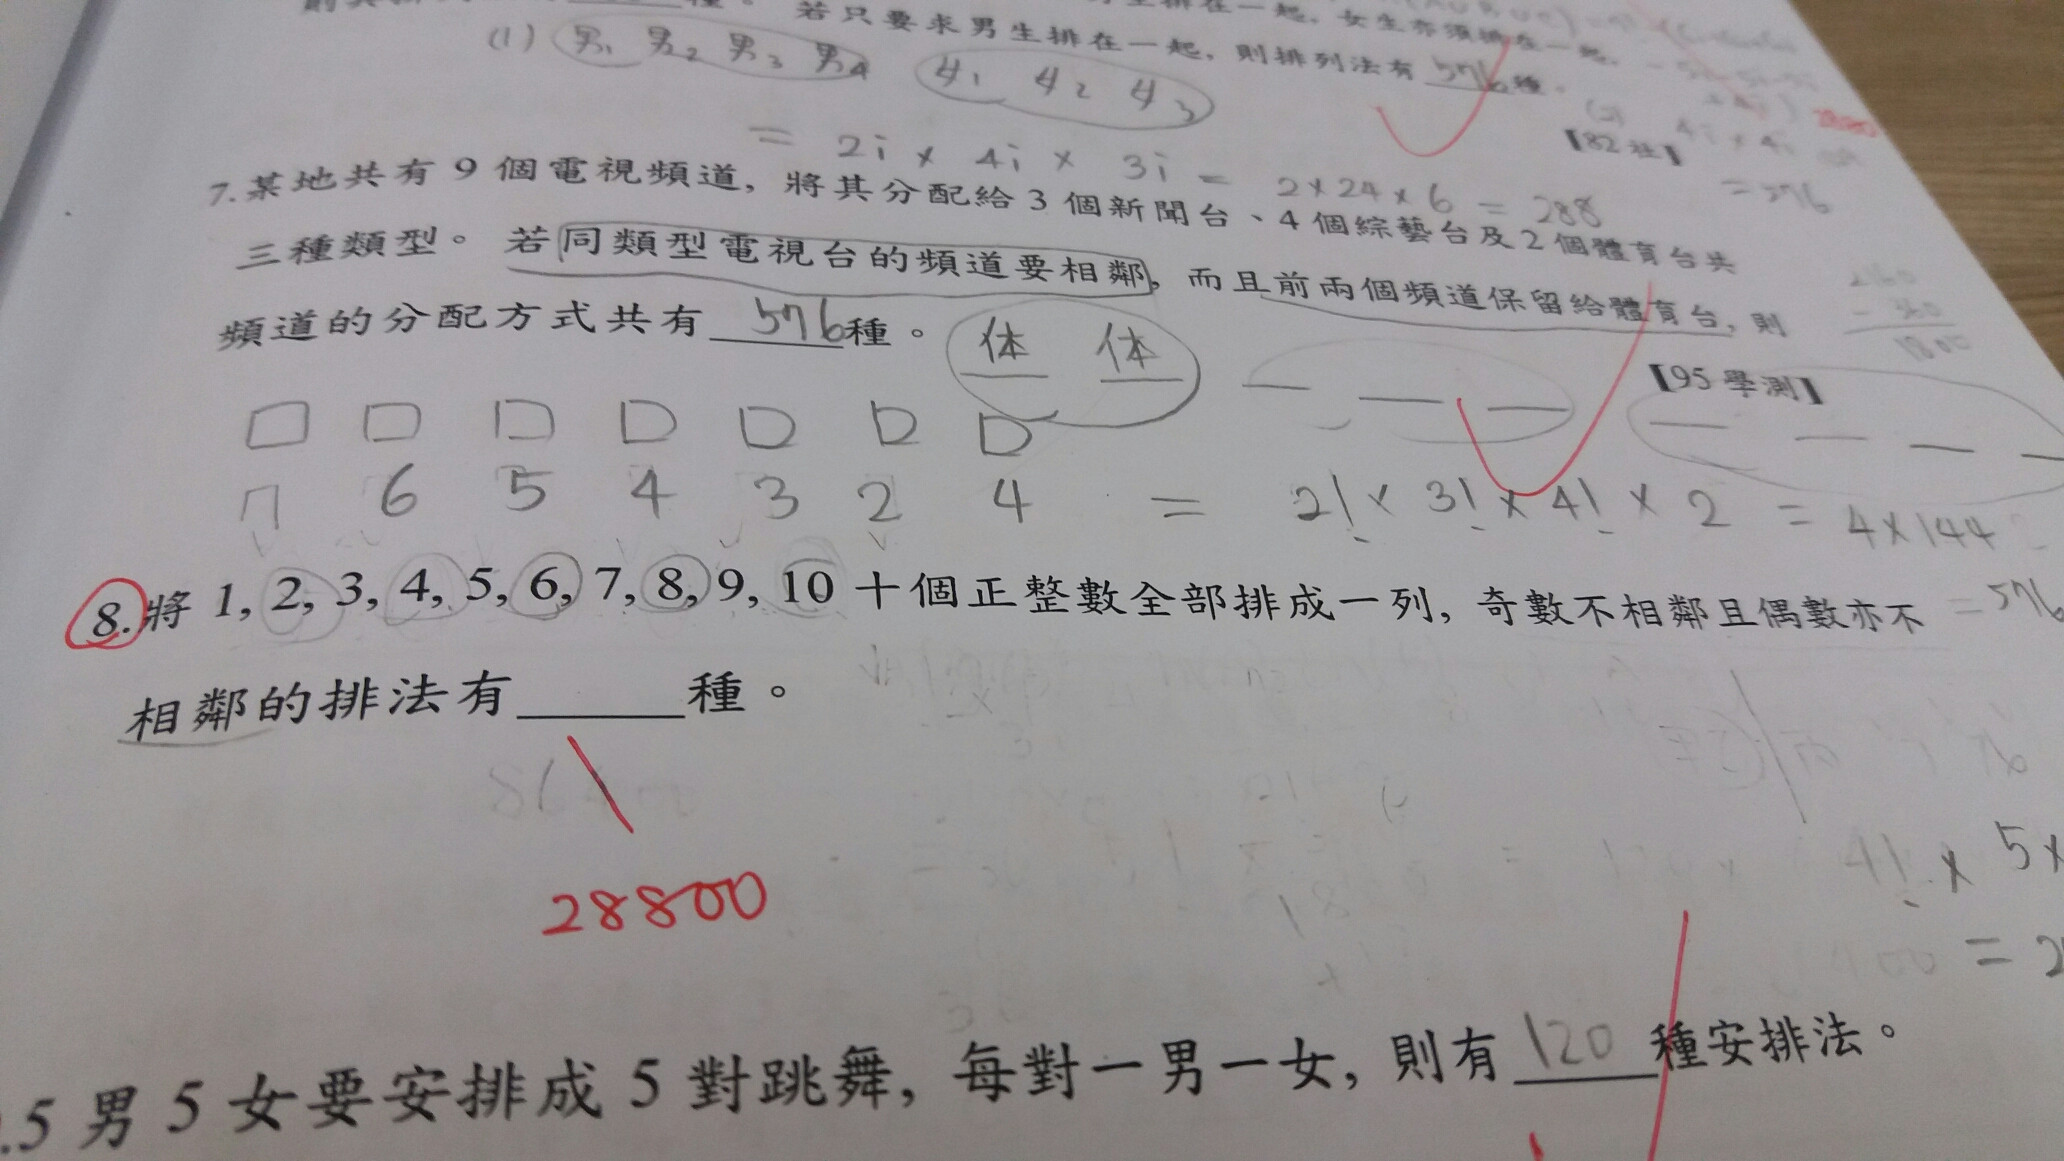 若只要求男生排在一起, 則排列法有 576 種。
(1) 男1 男2 男3 男4 女1 女2 女3
= 2! × 4! × 3! = 2×24×6 = 288
【82社】
= 576
7. 某地共有 9 個電視頻道, 將其分配給 3 個新聞台、4 個綜藝台及 2 個體育台共
三種類型。若同類型電視台的頻道要相鄰, 而且前兩個頻道保留給體育台, 則
頻道的分配方式共有 576 種。
体 体
【95 學測】
7 6 5 4 3 2 4 = 2! × 3! × 4! × 2 = 4×144
= 576
8. 將 1, 2, 3, 4, 5, 6, 7, 8, 9, 10 十個正整數全部排成一列, 奇數不相鄰且偶數亦不
相鄰的排法有 種。
28800
4! × 5 ×
= 2
.5 男 5 女要安排成 5 對跳舞, 每對一男一女, 則有 120 種安排法。